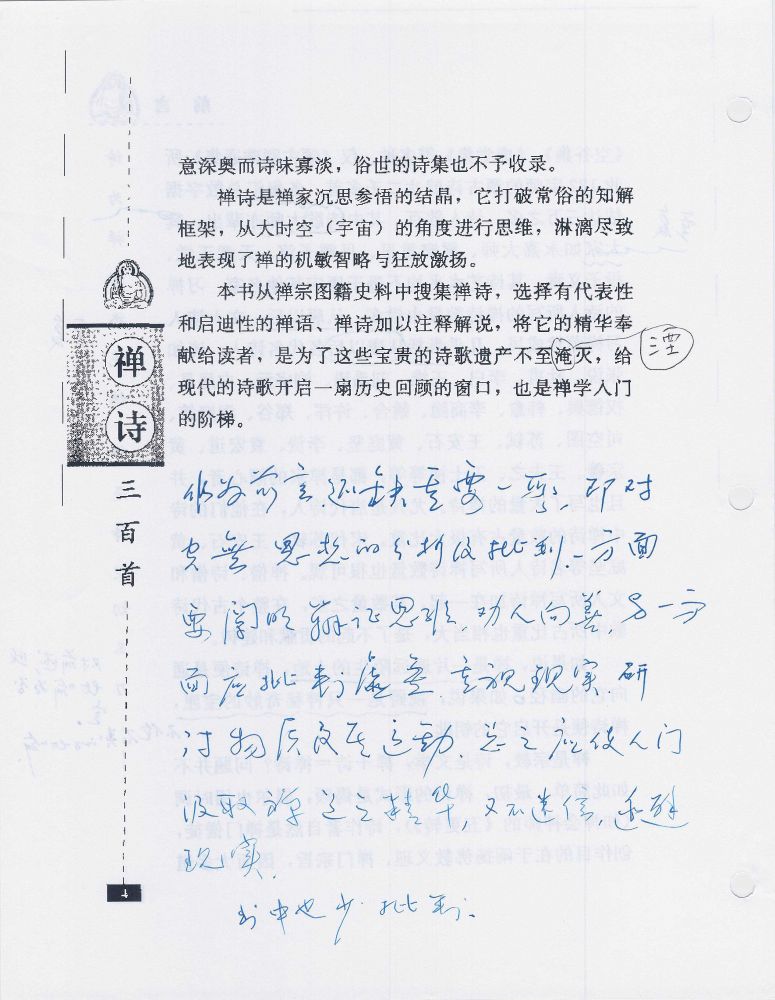 意深奥而诗味寡淡，俗世的诗集也不予收录。
禅诗是禅家沉思参悟的结晶，它打破常俗的知解
框架，从大时空（宇宙）的角度进行思维，淋漓尽致
地表现了禅的机敏智略与狂放激扬。
本书从禅宗图籍史料中搜集禅诗，选择有代表性
和启迪性的禅语、禅诗加以注释解说，将它的精华奉
献给读者，是为了这些宝贵的诗歌遗产不至淹灭，给
湮
现代的诗歌开启一扇历史回顾的窗口，也是禅学入门
的阶梯。
禅诗
三百首
作为前言还缺主要一点，即对
空无思想的分析及批判。一方面
要阐明辩证思维，劝人向善，另一方
面应批判虚空，重视现实，研
讨物质及其运动，总之应使人们
吸取禅之精华，又不迷信，
现实。
书中也少批判。